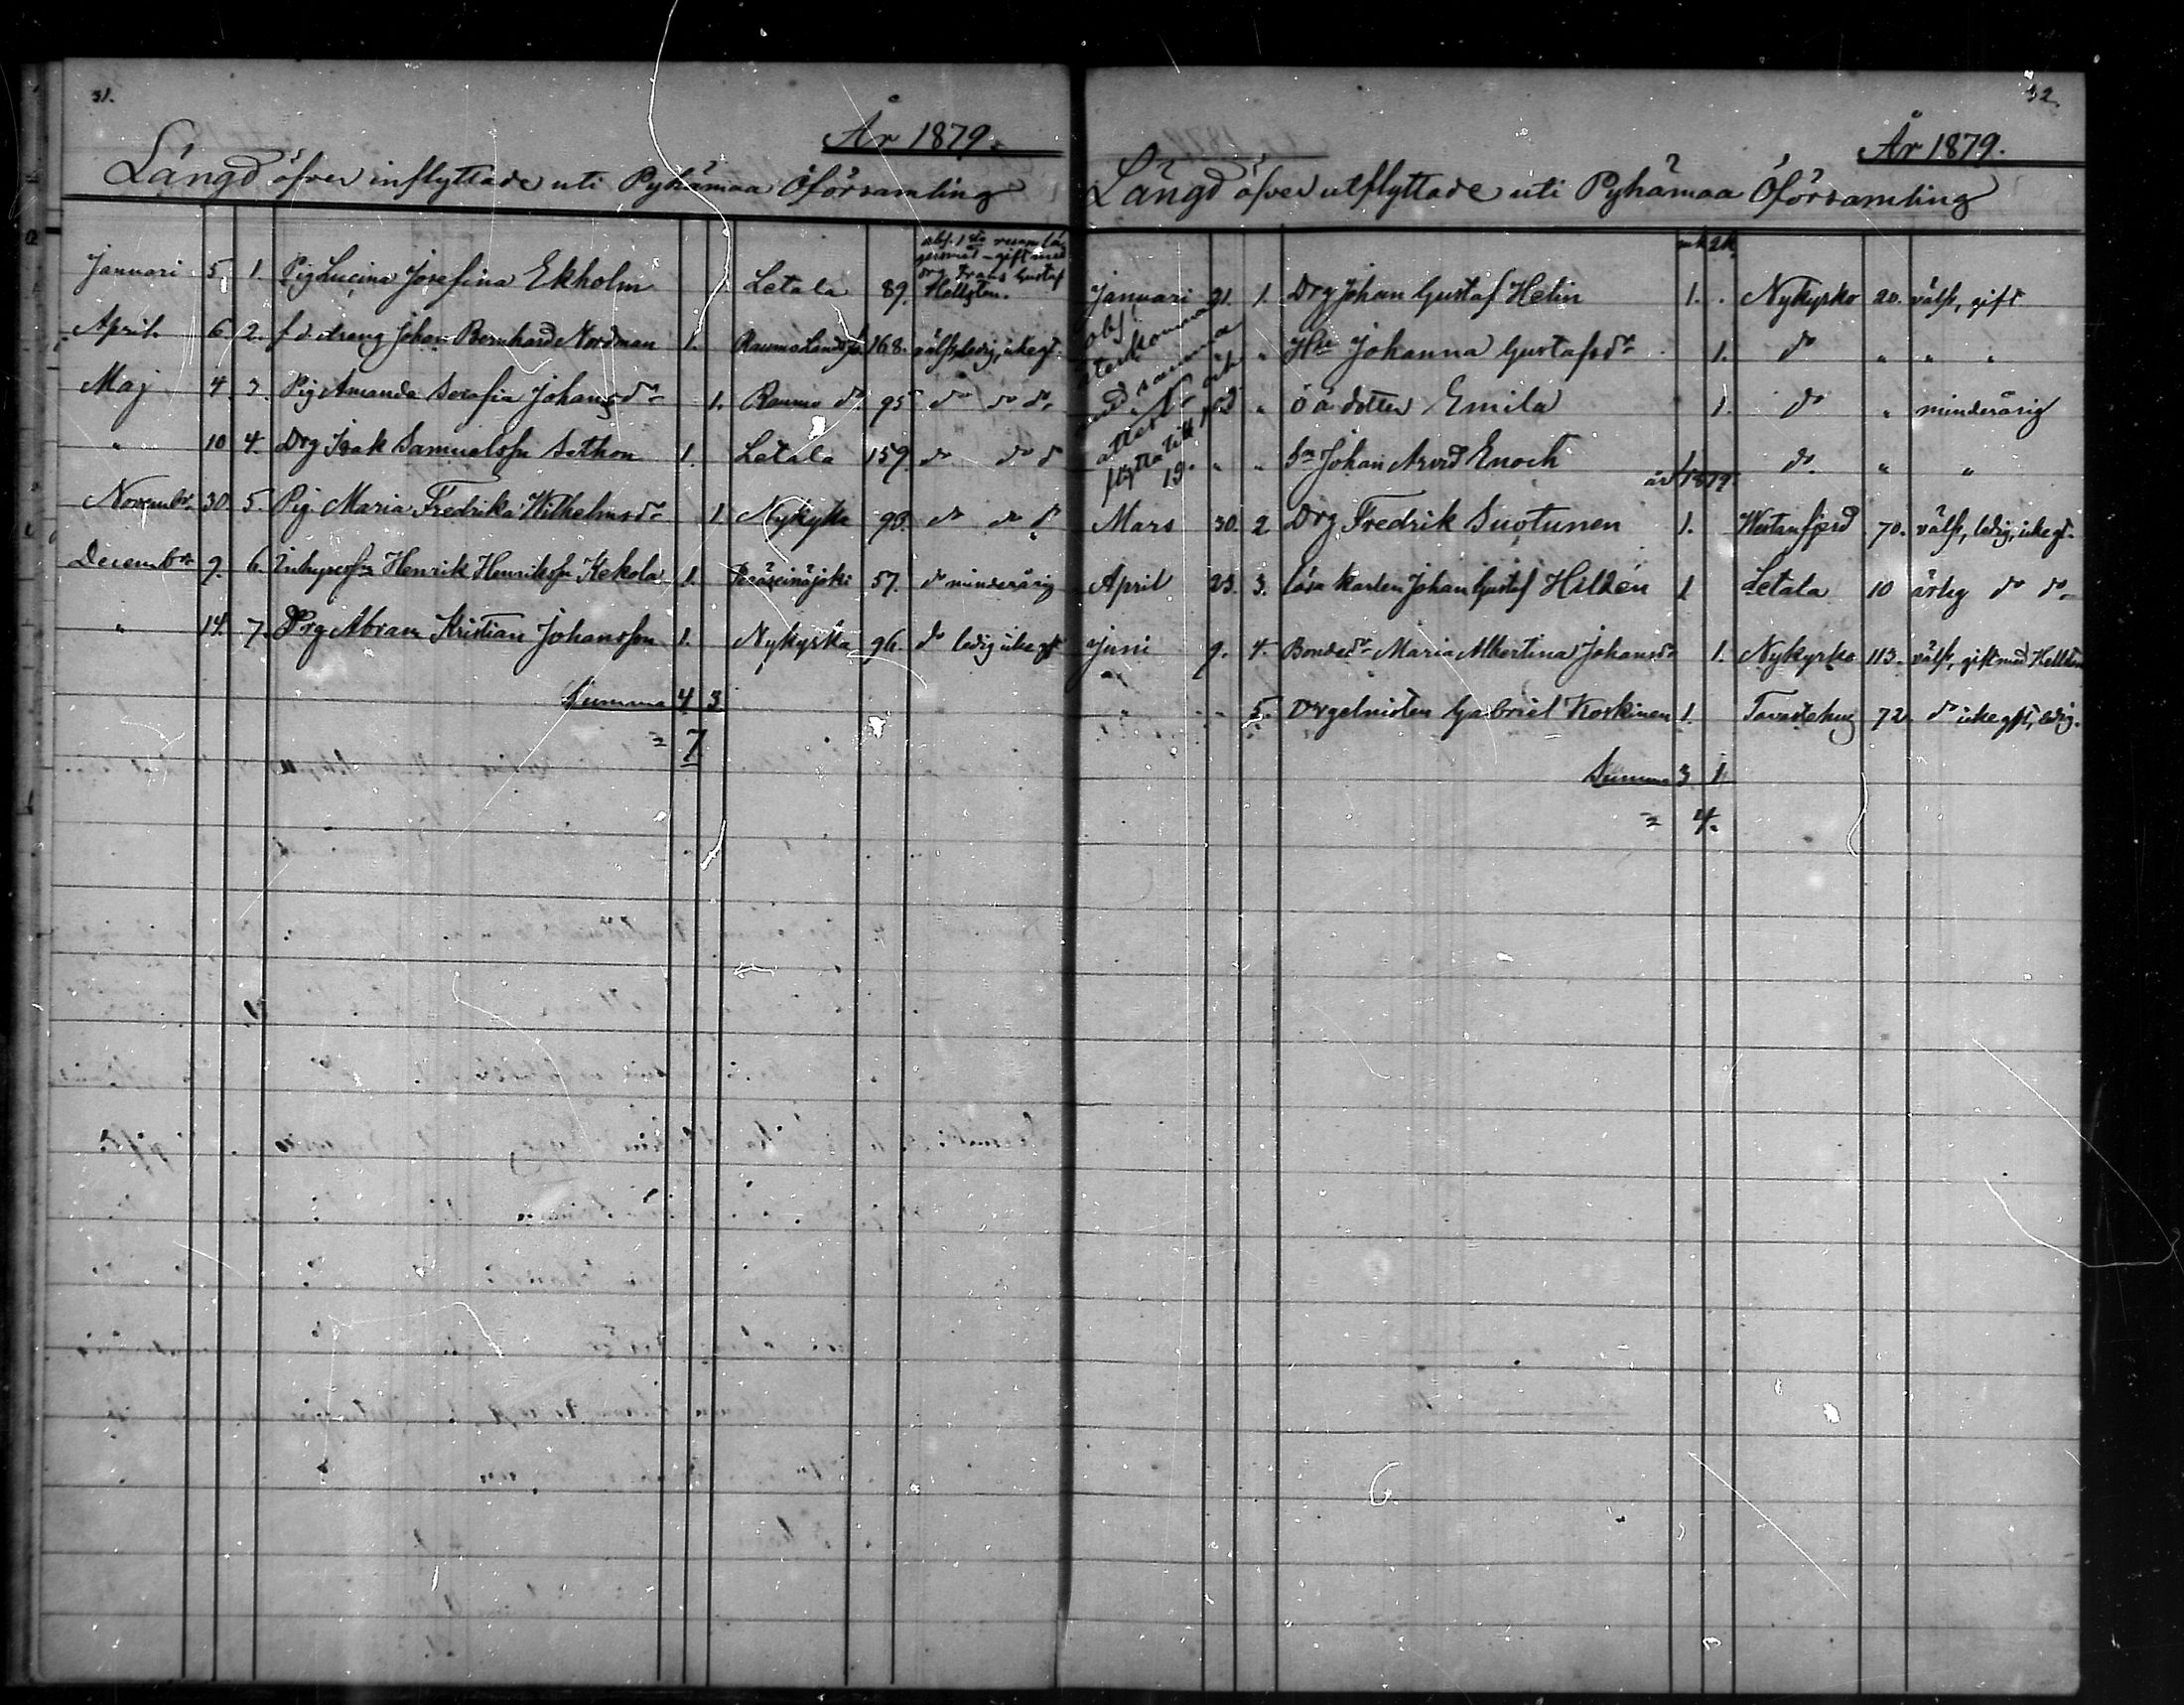 31.
År 1879.
Längd öfver inflyttade uti Pyhämaa Öförsamling
Januari 5. 1. Pig Lucina Josefina Ekholm Letala 89. gift med drg Frans Gustaf Hellsten.
April 6. 2. f d dreng Johan Bernhard Nordman 1. Raumo Landsf. 168. välfr, ledig, icke gt.
Maj 4. 3. Pig Amanda Serafia Johansdr 1. Raumo do 95 do do do
" 10 4. Drg Isak Samuelsson Sethon 1. Letala 159. do do do
Novembr. 30. 5. Pig Maria Fredrika Wilhelmsdr 1 Nykyrka 93. do do do
Decembr. 9. 6. Inhyses Henrik Henriksson Kekola 1. Peräseinäjoki 57. do minderårig
" 14. 7. Drg Abram Kristian Johansson 1. Nykyrka 96. do ledig icke gt
Summa 4 3
= 7
32.
År 1879.
Längd öfver utflyttade uti Pyhämaa Öförsamling
mk qk
Januari 21. 1. Drg Johan Gustaf Helin 1. Nykyrko 20. välfr, gift
" " Hu Johanna Gustafsdr 1. do " " "
" ö ä dotter Emila 1. do " minderårig
" " Sn Johan Arvid Enoch 1 do " "
obs! återkomma med samma attest och flyttat till 19.
år 1879
Mars 30. 2 Drg Fredrik Suotunen 1. Westanfjerd 70. välfr, ledig, icke gt.
April 23. 3. Lösa karlen Johan Gustaf Hilden 1 Letala 10 ärlig do do
Juni 9. 4. Bondedr Maria Albertina Johansdr 1. Nykyrko 113. välfr, gift med Hellsten
" " 5. Orgelnisten Gabriel Koskinen 1. Tavastehus 72 do icke gift, ledig.
Summa 3 1
= 4.